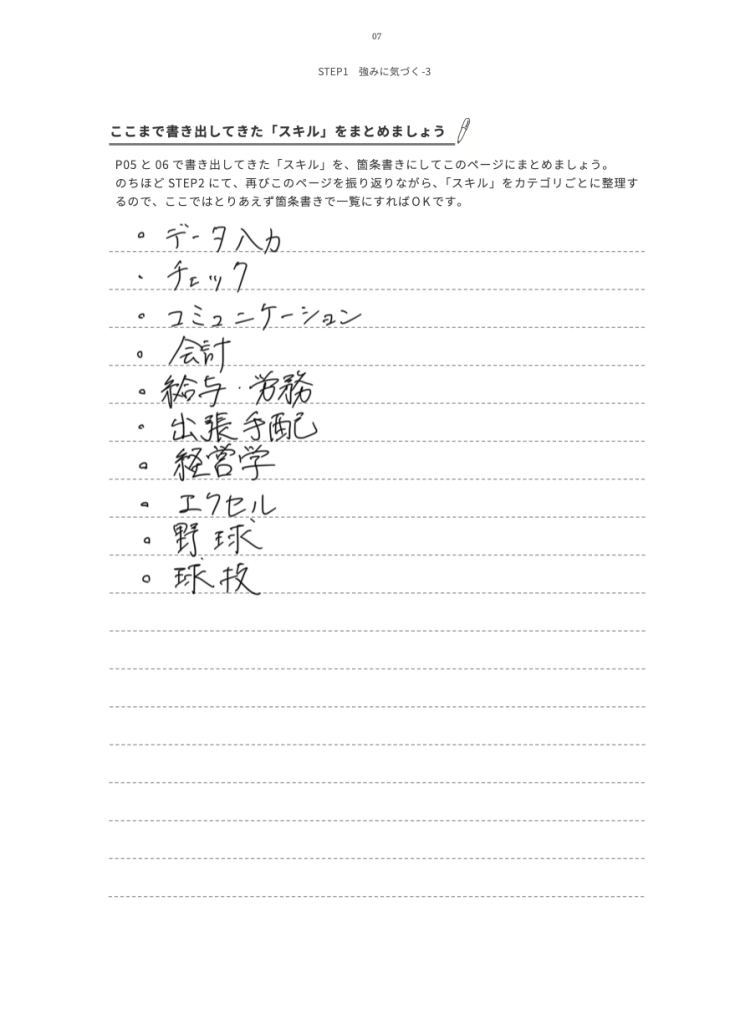 07
STEP1　強みに気づく-3
ここまで書き出してきた「スキル」をまとめましょう
P05 と 06 で書き出してきた「スキル」を、箇条書きにしてこのページにまとめましょう。
のちほど STEP2 にて、再びこのページを振り返りながら、「スキル」をカテゴリごとに整理す
るので、ここではとりあえず箇条書きで一覧にすればOKです。
。データ入力
・チェック
。コミュニケーション
。会計
。給与・労務
。出張手配
。経営学
。エクセル
。野球
。球技